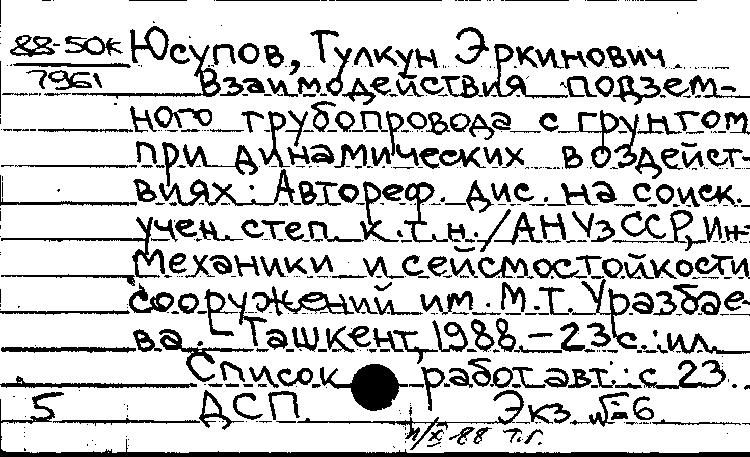 88-50к Юсупов, Тулкун Эркинович.
7961 Взаимодействия подзем-
ного трубопровода с грунтом
при динамических воздейст-
виях: Автореф. дис. на соиск.
учен. степ. к.т.н./АН УзССР, Ин-
Механики и сейсмостойкости
сооружений им. М.Т. Уразбае-
ва. - Ташкент, 1988. - 23 с.: ил.
Список работ авт.: с 23.
5 ДСП. Экз. №6.
88 т.г.